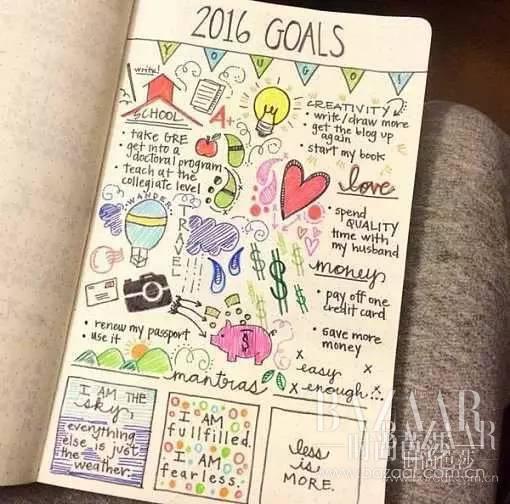 2016 GOALS
YOU GO!
write!
SCHOOL
A+
• take GRE
• get into a
doctoral program
• teach at the
collegiate level
CREATIVITY
• write/draw more
get the blog up
again
• start my book
love
• spend
QUALITY
time with
my husband
WANDER
TRAVEL
• renew my passport
• use it
money
• pay off one
credit card
• save more
money
x easy
x enough...
$
mantras
I AM THE
sky,
everything
else is just
the weather.
I AM
fullfilled.
I AM
fearless.
less
IS
MORE.
BAZAAR
www.bazaar.com.cn